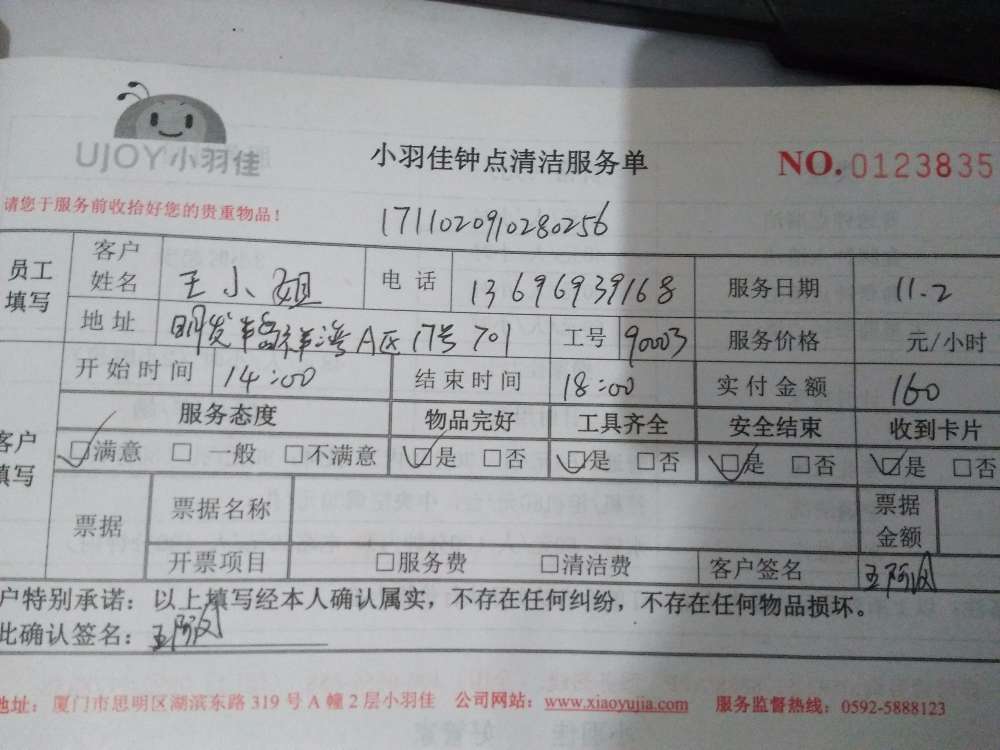 UJOY小羽佳
小羽佳钟点清洁服务单
NO.0123835
请您于服务前收拾好您的贵重物品！
1711020910280256
员工填写 客户姓名 王小姐 电话 13696939168 服务日期 11.2
地址 明发半岛祥湾A区17号701 工号 90003 服务价格 元/小时
客户填写 开始时间 14:00 结束时间 18:00 实付金额 160
服务态度 物品完好 工具齐全 安全结束 收到卡片
☑满意 □一般 □不满意 ☑是 □否 ☑是 □否 ☑是 □否 ☑是 □否
票据 票据名称 票据金额
开票项目 □服务费 □清洁费 客户签名 王阿凤
户特别承诺：以上填写经本人确认属实，不存在任何纠纷，不存在任何物品损坏。
此确认签名：王阿凤
地址：厦门市思明区湖滨东路319号A幢2层小羽佳 公司网站：www.xiaoyujia.com 服务监督热线：0592-5888123